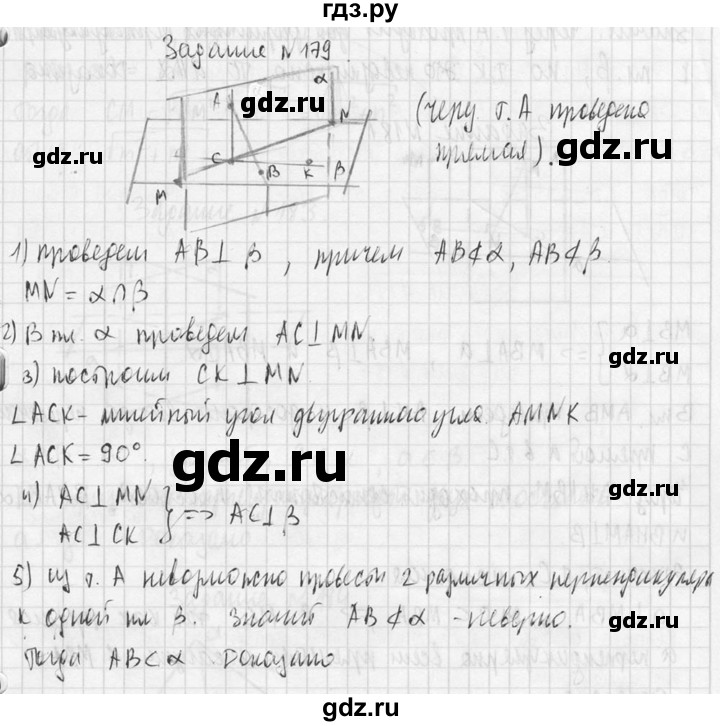 гдз.ру
Задание N179
α
A
gdz.ru
N
(через т. А проведена
gdz.ru
C
B
K
β
прямая).
gdz.ru
M
1) проведем AB⊥β, причем AB⊄α, AB⊄β.
gdz.ru
MN = α∩β
2) В пл. α проведем AC⊥MN.
3) построим CK⊥MN.
gdz.ru
∠ACK - линейный угол двугранного угла AMNK
∠ACK = 90°.
gdz.ru
4) AC⊥MN
AC⊥CK } => AC⊥β
gdz.ru
5) из т. А невозможно провести 2 различных перпендикуляра
к одной пл. β. Значит AB⊄α - неверно.
Тогда AB⊂α Доказано
gdz.ru
gdz.ru